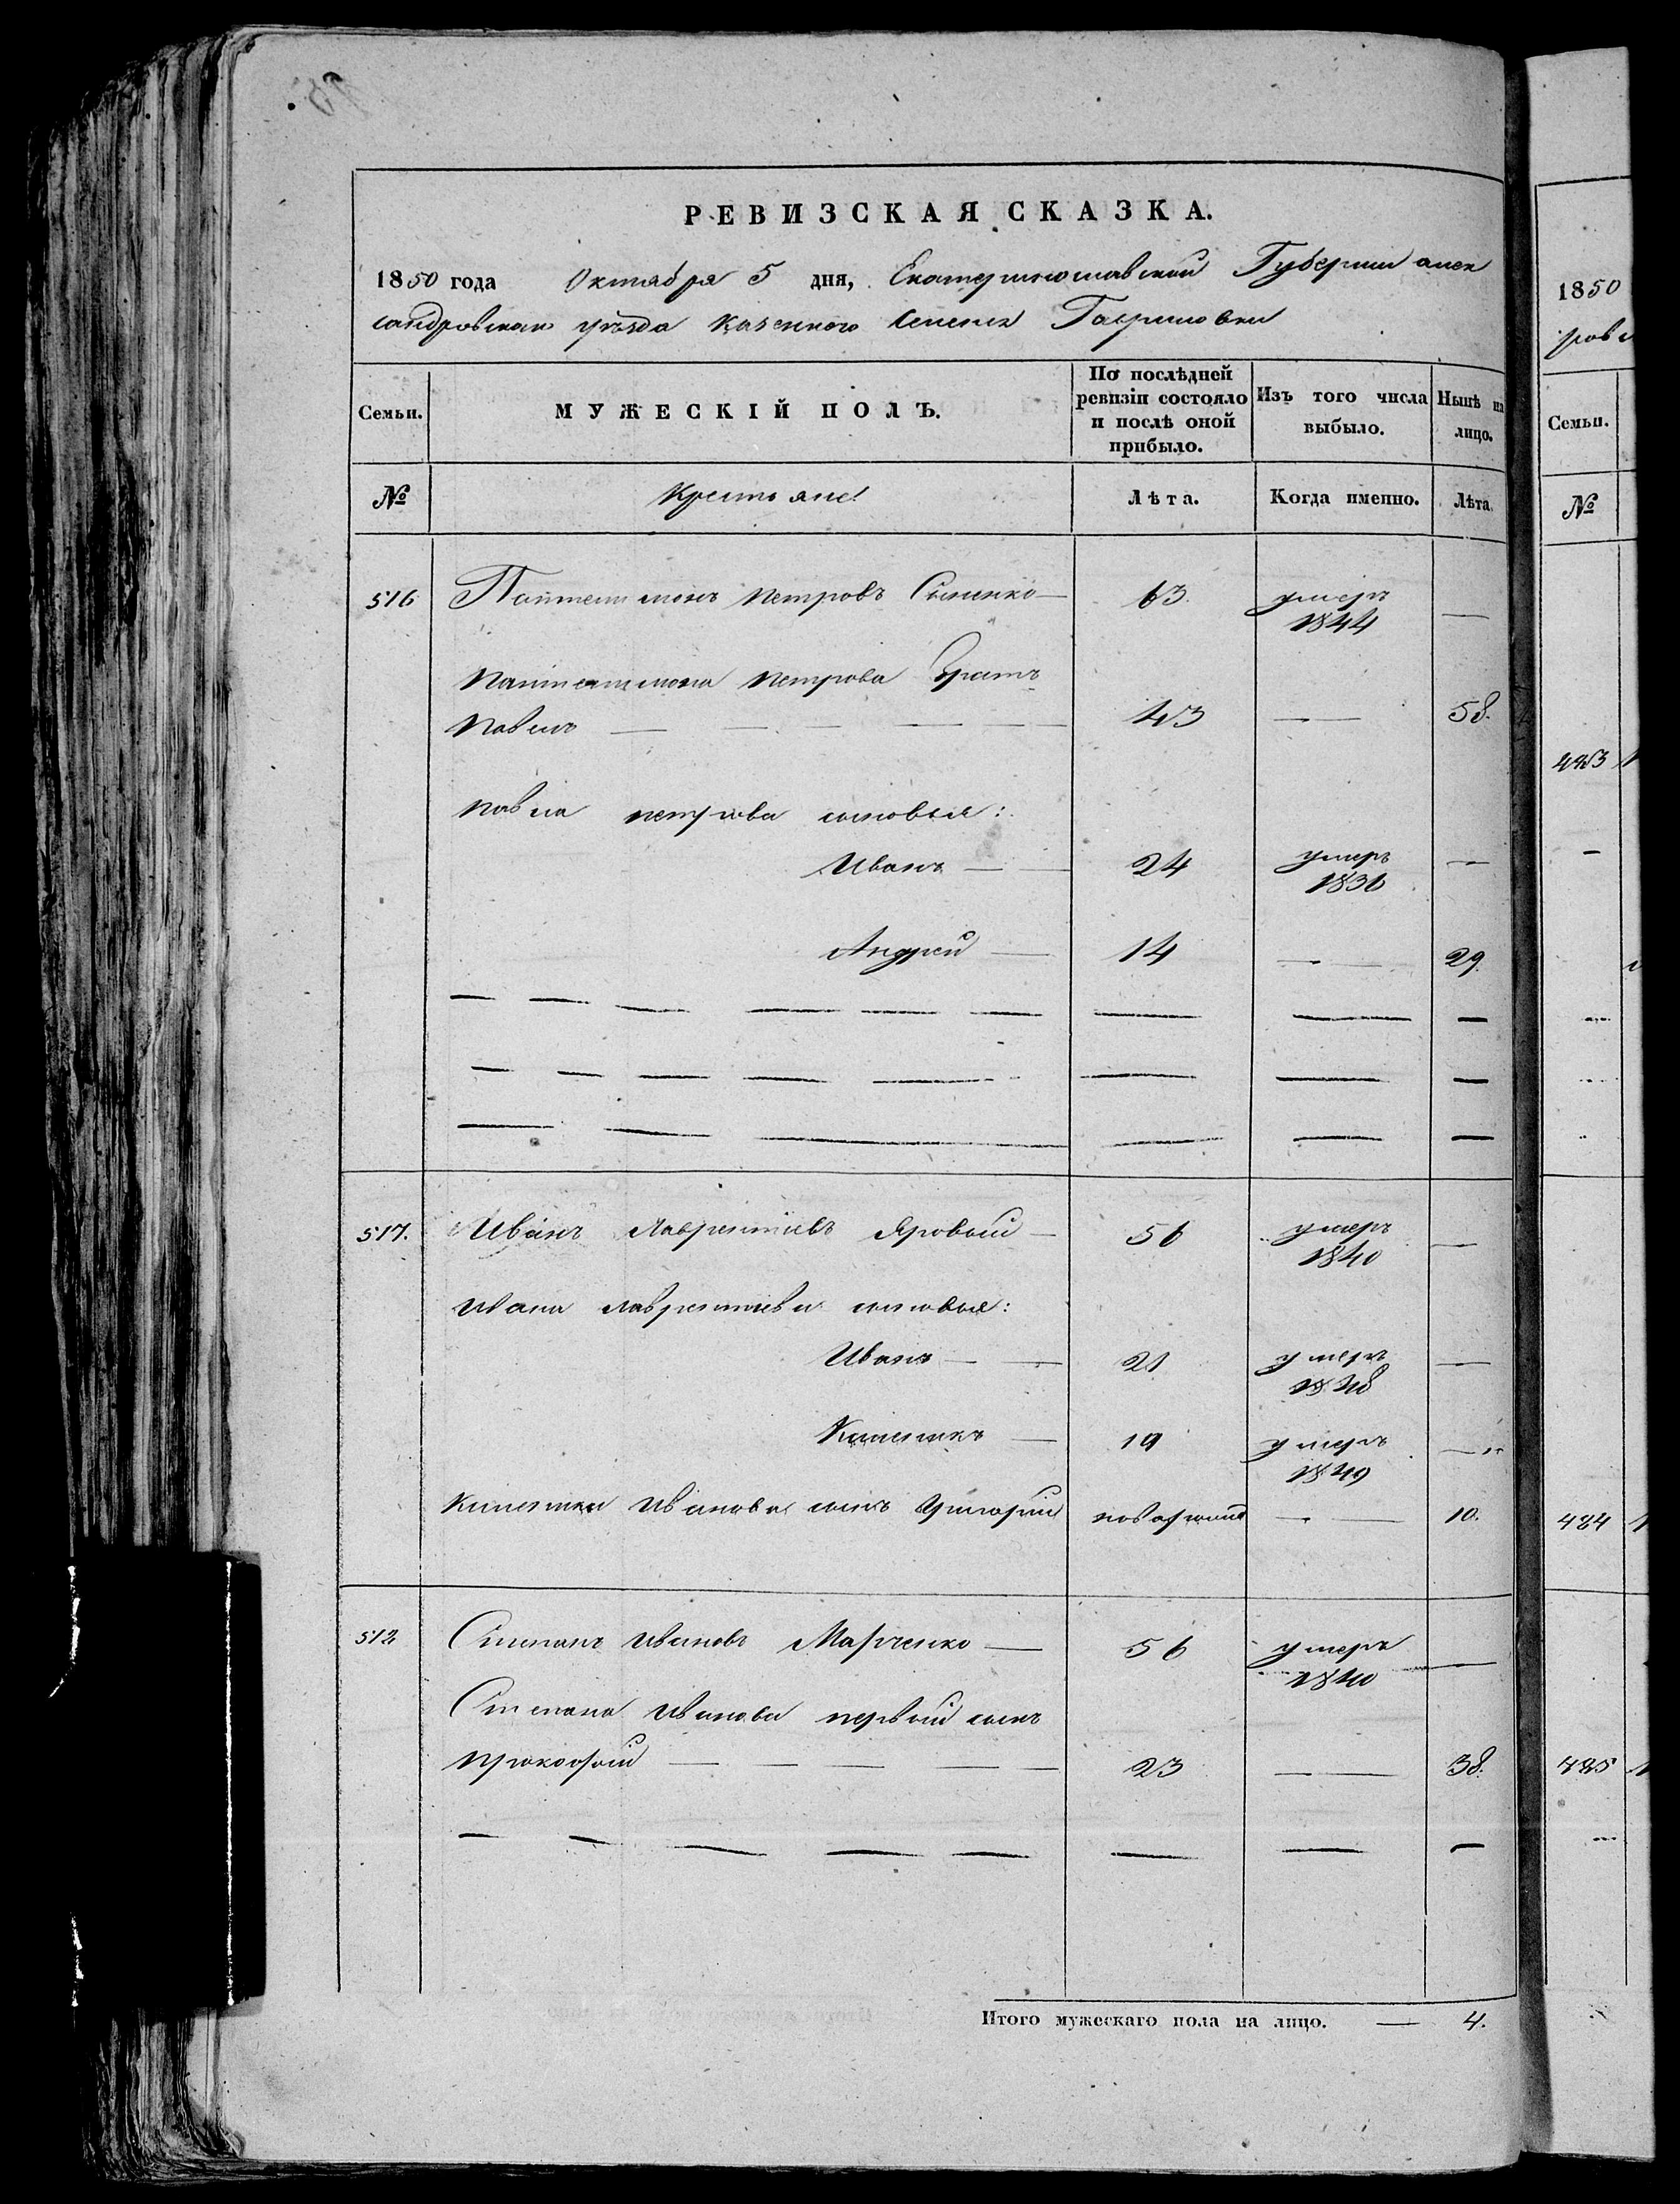 РЕВИЗСКАЯ СКАЗКА.
1850 года Октября 5 дня, Екатеринославской Губернии алек
сандровскаго уѣзда казенного Селенія Гавриловки
Семьи. МУЖЕСКІЙ ПОЛЪ. По послѣдней ревизіи состояло и послѣ оной прибыло. Изъ того числа выбыло. Нынѣ на лицо.
№ Крестьяне Лѣта. Когда именно. Лѣта.
516 Пантелимонъ петровъ 63. умеръ 1844 —
пантелимона петрова братъ
павелъ — — — — — 43 — 58.
павла петрова сыновья:
Иванъ — — 24 умеръ 1836 —
Андрей — 14 — 29.
517. Иванъ Лаврентьевъ Яровый — 56 умеръ 1840 —
Ивана лаврентьева сыновья:
Иванъ — — 21 умеръ 1848 —
— 19 умеръ 1849 —
Иванова сынъ Григорій новорожд — 10.
512 Степанъ Ивановъ Марченко — 56 умеръ 1840 —
Степана Иванова первый сынъ
прокофій — — — — — 23 — 38.
Итого мужескаго пола на лицо. — 4.
1850
ров
Семьи.
№
483
484
485